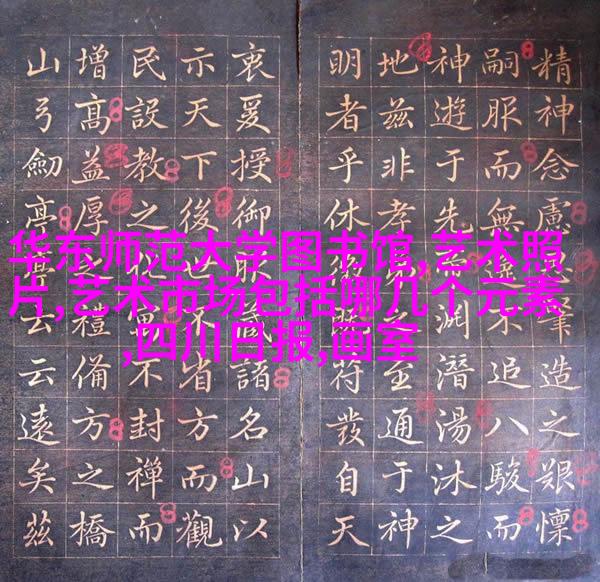 华东师范大学图书馆,艺术照
片,艺术市场包括哪几个元素
,四川日报,画室
精神念慮肇造之艱懍
嗣服而無不追八駿而
神遊于先淵潛湯沐之
地茲非孝之至通于神
明者乎休符發自天
衷爰授御諸名山以
示天下後世不省方而觀
民設教之不封禪而
增高益厚禮備方之橋
山弓劍亭云云遠矣茲